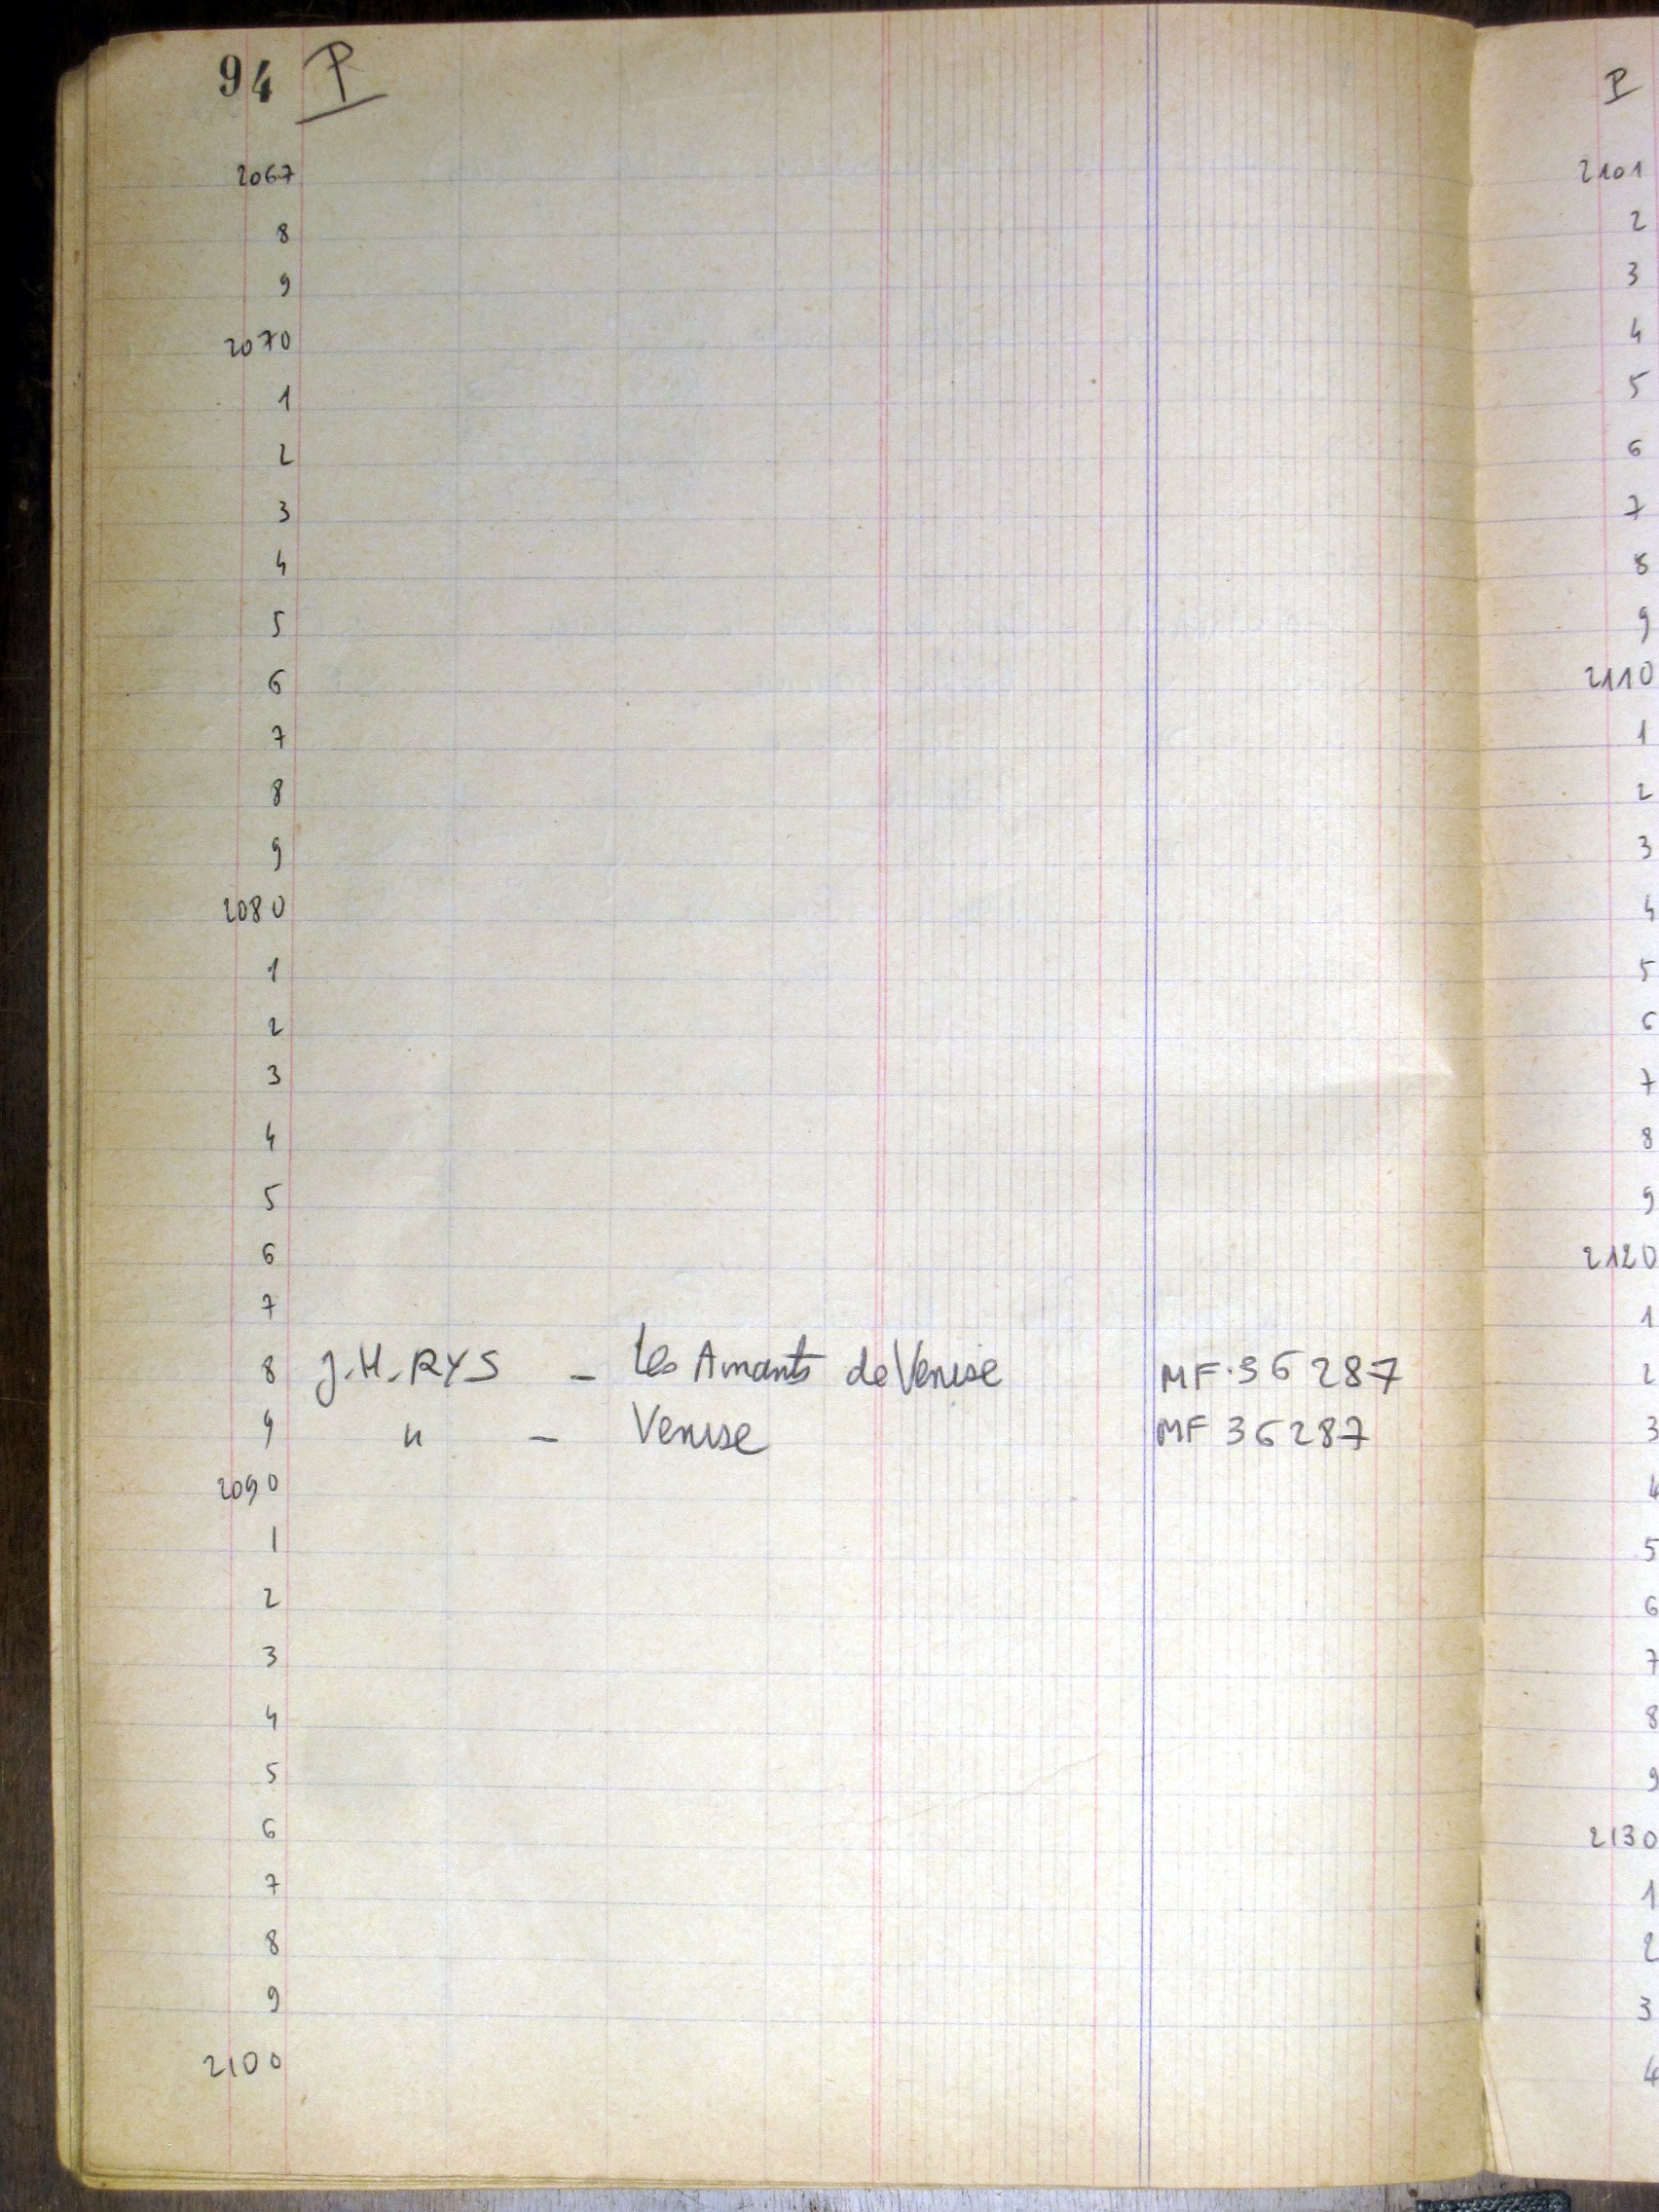 94 P
2067
8
9
2070
1
2
3
4
5
6
7
8
9
2080
1
2
3
4
5
6
7
8 J.H.RYS - Les Amants de Venise MF.36287
9 " - Venise MF 36287
2090
1
2
3
4
5
6
7
8
9
2100
P
2101
2
3
4
5
6
7
8
9
2110
1
2
3
4
5
6
7
8
9
2120
1
2
3
4
5
6
7
8
9
2130
1
2
3
4